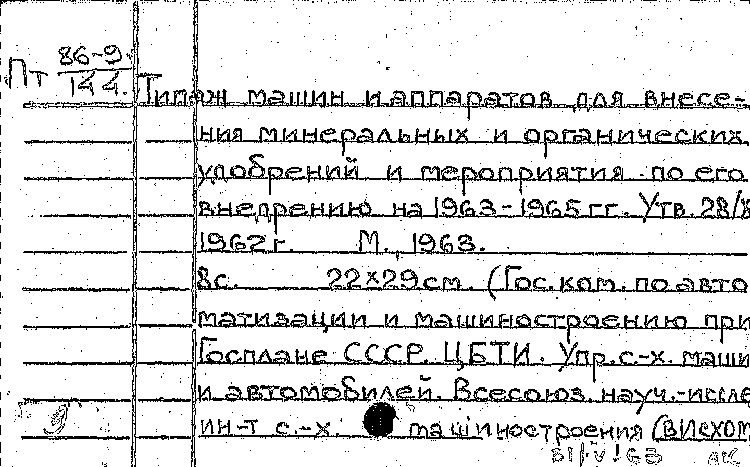 Пт 86-9
144.
Типаж машин и аппаратов для внесе-
ния минеральных и органических
удобрений и мероприятия по его
внедрению на 1963-1965 гг. Утв. 28/8
1962 г. М., 1963.
8с. 22×29 см. (Гос. ком. по авто
матизации и машиностроению при
Госплане СССР. ЦБТИ. Упр. с.-х. маши
и автомобилей. Всесоюз. науч.-иссле
ин-т с.-х. машиностроения (ВИСХОМ
31/V 63 АК